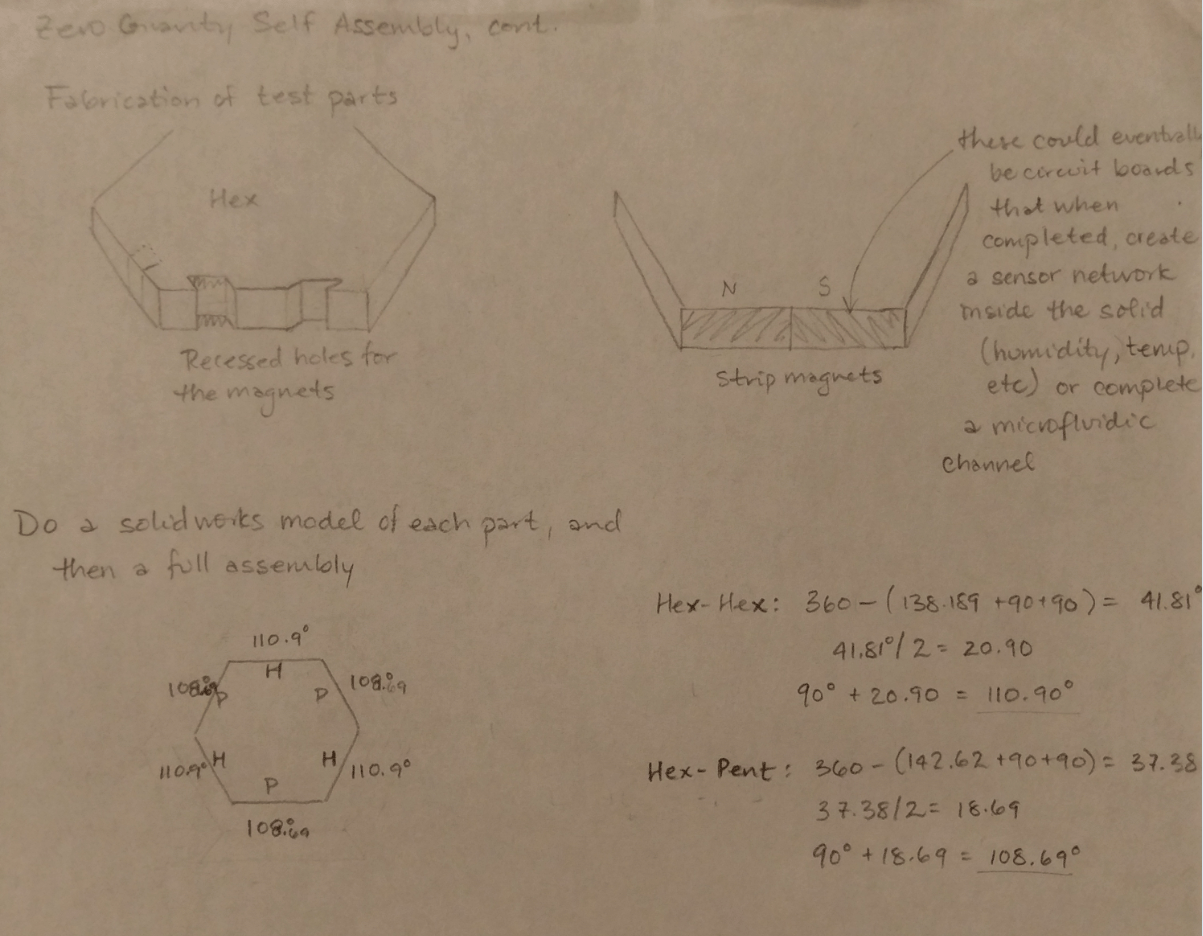 Zero Gravity Self Assembly, cont.
Fabrication of test parts
Hex
Recessed holes for
the magnets
N S
Strip magnets
these could eventually
be circuit boards
that when
completed, create
a sensor network
inside the solid
(humidity, temp,
etc) or complete
a microfluidic
channel
Do a solidworks model of each part, and
then a full assembly
110.9°
H
108.69 P
P 108.69
110.9° H
H 110.9°
P
108.69
Hex-Hex: 360-(138.189 +90+90)= 41.81°
41.81°/2= 20.90
90° + 20.90 = 110.90°
Hex-Pent: 360-(142.62+90+90)= 37.38
37.38/2= 18.69
90° +18.69 = 108.69°